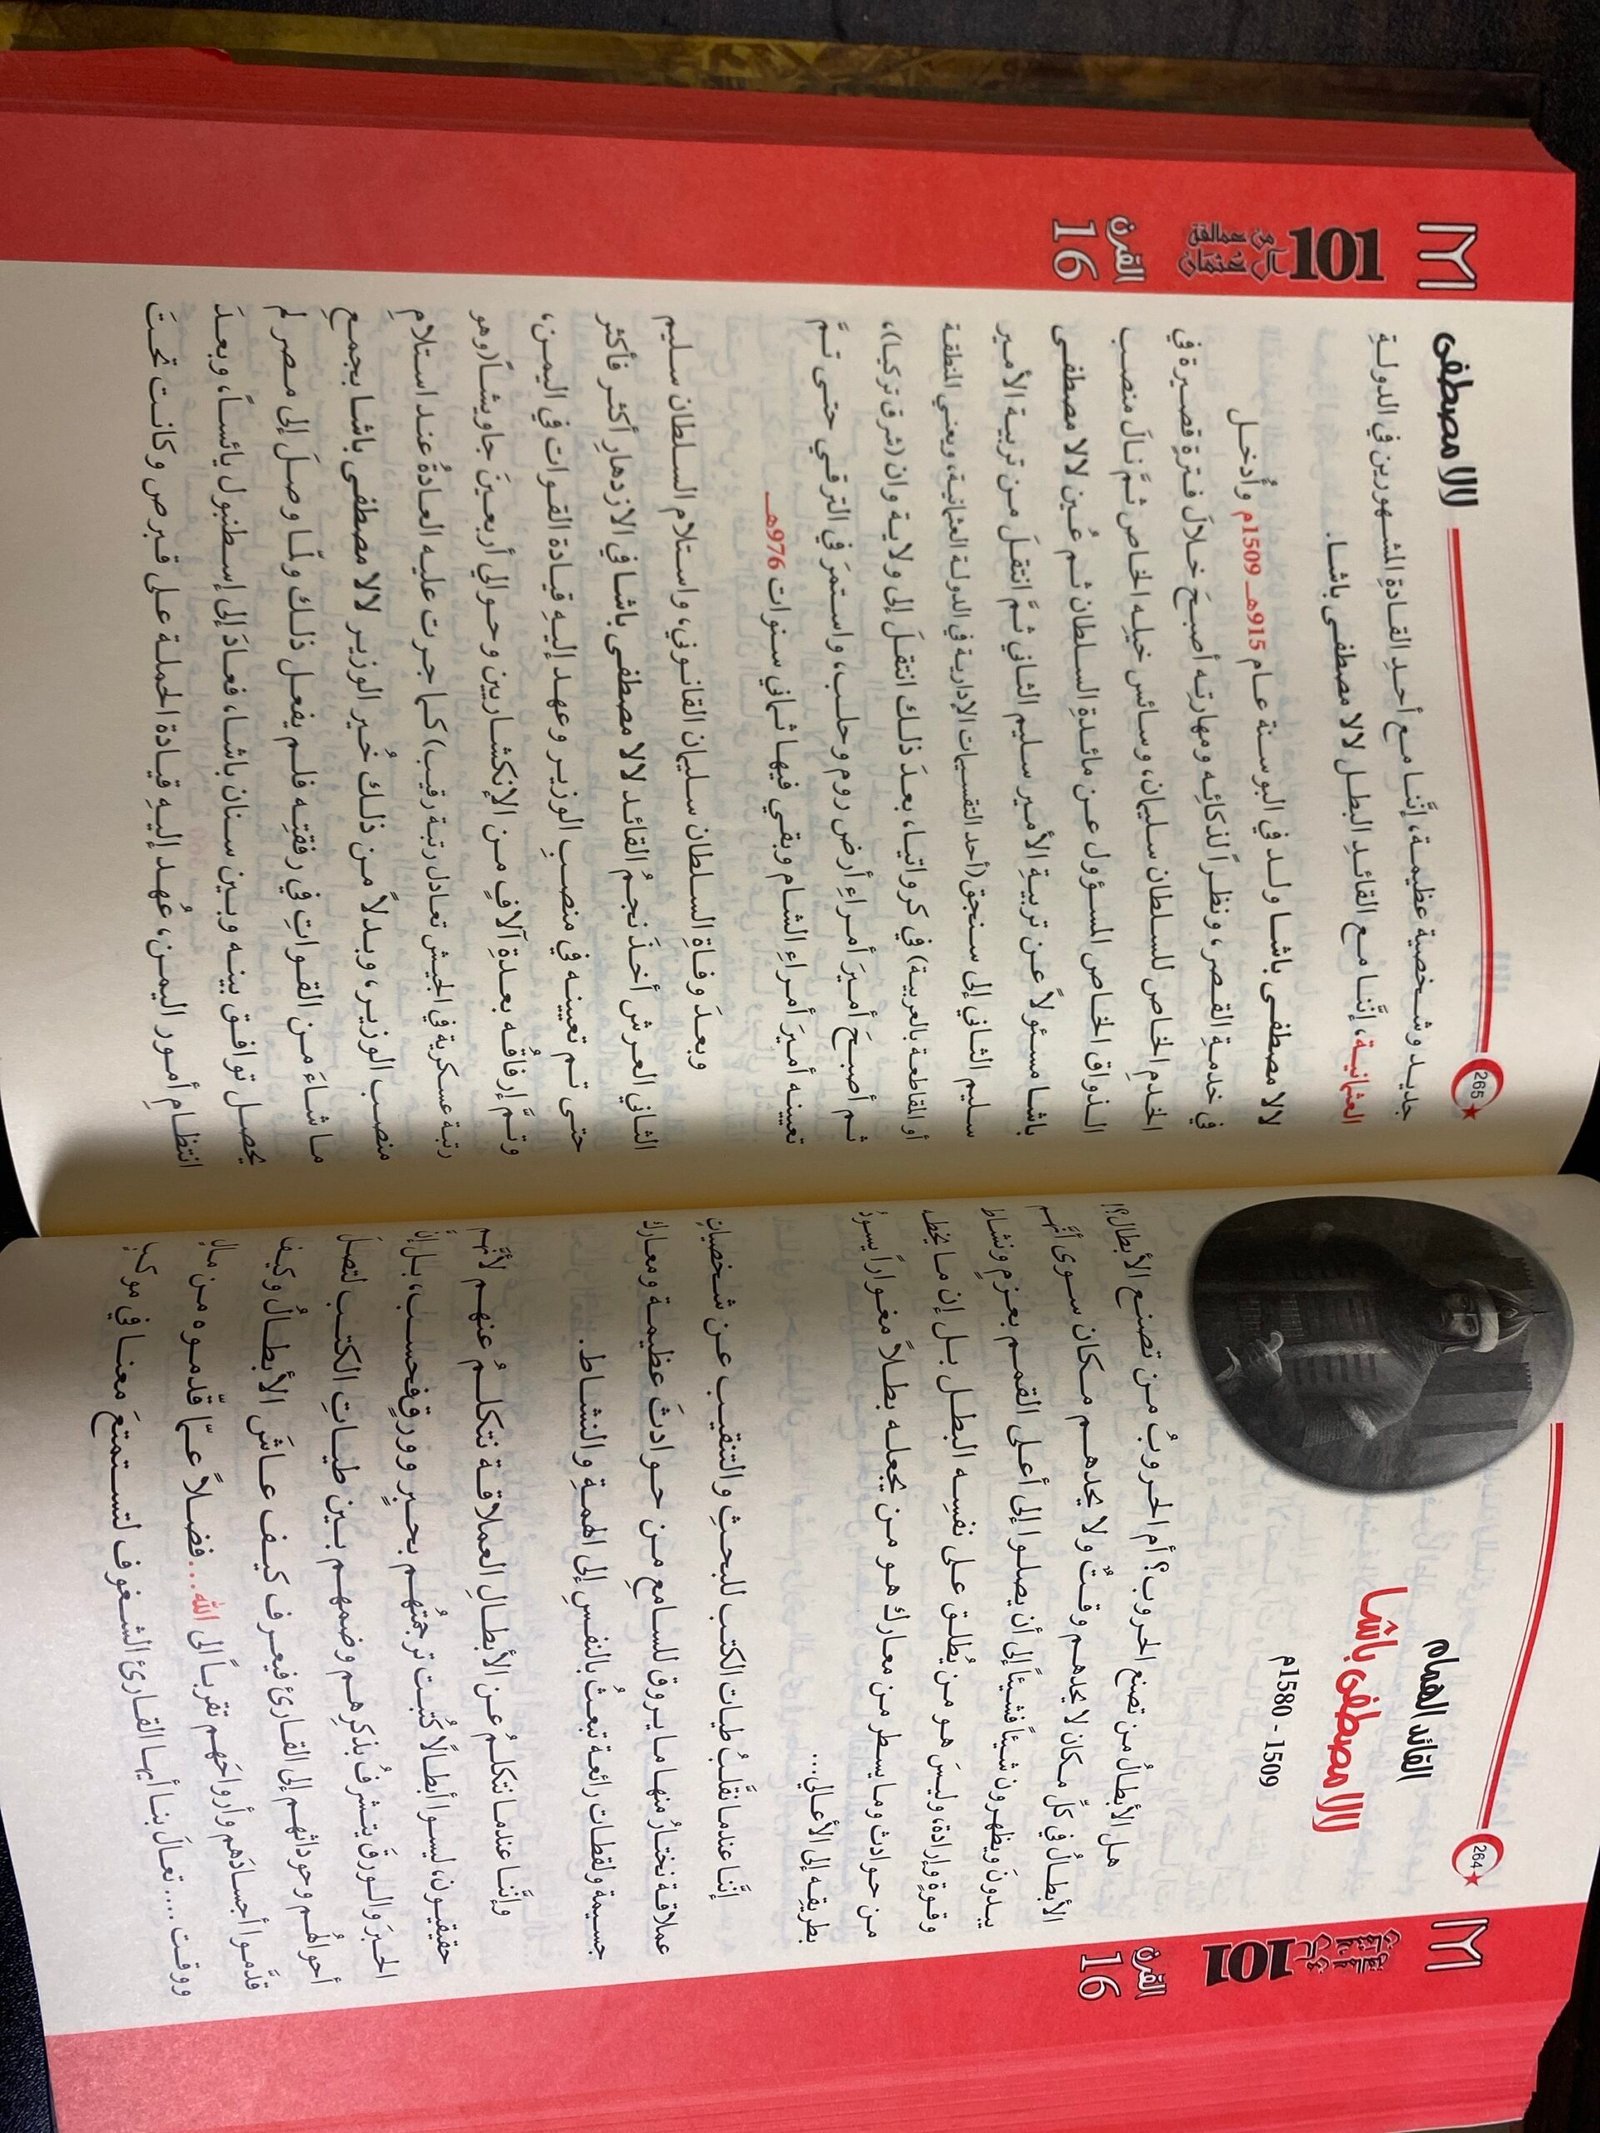 264
101
من عمالقة
آل عثمان
القرن
16
القائد الهمام
لالا مصطفى باشا
1509 - 1580م
هل الأبطالُ من تصنع الحروب؟ أم الحروبُ من تصنع الأبطال؟!
الأبطالُ في كلِّ مكان لا يحدهم وقتٌ ولا يحدهم مكان سوى أنَّهم
يبدونَ ويظهرون شيئاً فشيئاً إلى أن يصلوا إلى أعلى القمم بعزمٍ ونشاط
وقوةٍ وإرادة، وليسَ هو من يُطلق على نفسِه البطل بل إن ما يخطه
من حوادث وما يسطر من معارك هو من يجعله بطلاً مغواراً يسودُ
بطريقِه إلى الأعالي...
إنَّنا عندما نقلَّبُ طيات الكتب للبحثِ والتنقيب عن شخصياتٍ
عملاقة نختارُ منها ما يروق للسامعِ من حوادثَ عظيمة ومعارك
جسيمة ولقطات رائعة تبعثُ بالنفسِ إلى الهمةِ والنشاط.
وإنَّنا عندما نتكلمُ عن الأبطالِ العملاقة نتكلمُ عنهم لأنَّهم
حقيقيون، ليسوا أبطالاً كُتبت ترجمتُهم بحبرٍ وورقٍ فحسب، بل إنَّ
الحبرَ والورقَ يتشرفُ بذكرِهم وضمهم بين طياتِ الكتب لتصلَ
أحوالُهم وحوداثهم إلى القارئ فيعرف كيف عاشَ الأبطالُ وكيف
قدَّموا أجسادَهم وأرواحَهم تقرباً إلى الله... فضلاً عمّا قدموه من مالٍ
ووقت.... تعالَ بنا أيها القارئ الشغوف لتستمتعَ معنا في موكبٍ
265
لالا مصطفى
101
من عمالقة
آل عثمان
القرن
16
جديد وشخصية عظيمة، إنَّنا مع أحدِ القادةِ المشهورين في الدولةِ
العثمانية، إنَّنا مع القائدِ البطل لالا مصطفى باشا.
لالا مصطفى باشا ولد في البوسنة عام 915هـ 1509م وأُدخل
في خدمةِ القصر، ونظراً لذكائِه ومهارتِه أصبحَ خلالَ فترةٍ قصيرة في
الخدمِ الخاص للسلطان سليمان، وسائس خيلِه الخاص ثمَّ نالَ منصب
الذواق الخاص المسؤول عن مائدةِ السلطان ثم عُين لالا مصطفى
باشا مسئولاً عن تربيةِ الأمير سليم الثاني ثمَّ انتقلَ من تربية الأمير
سليم الثاني إلى سنجق (أحد التقسيمات الإدارية في الدولة العثمانية، ويعني المنطقة
أو المقاطعة بالعربية) في كرواتيا، بعدَ ذلك انتقلَ إلى ولاية وان (شرق تركيا)،
ثم أصبحَ أميرَ أمراءِ أرض روم وحلب، واستمرَ في الترقي حتى تمَّ
تعيينه أميرَ أمراءِ الشام وبقي فيها ثماني سنوات 976هـ
وبعدَ وفاةِ السلطان سليمان القانوني، واستلام السلطان سليم
الثاني العرش أخذَ نجمُ القائد لالا مصطفى باشا في الازدهارِ أكثر فأكثر
حتى تم تعيينه في منصبِ الوزير وعهد إليهِ قيادة القوات في اليمن،
وتمَّ إرفاقُه بعدةِ آلافٍ من الإنكشاريين وحوالي أربعينَ جاويشاً (وهو
رتبة عسكرية في الجيش تعادل رتبة رقيب) كما جرت عليه العادةُ عند استلامِ
منصب الوزير، وبدلاً من ذلك خُير الوزير لالا مصطفى باشا بجمعِ
ما شاءَ من القواتِ في رفقتِه فلم يفعل ذلك ولمّا وصلَ إلى مصر لم
يحصل توافق بينه وبين سنان باشا، فعادَ إلى إسطنبول يائساً، وبعدَ
انتظامِ أمور اليمن، عُهد إليهِ قيادة الحملة على قبرص وكانت تحتَ